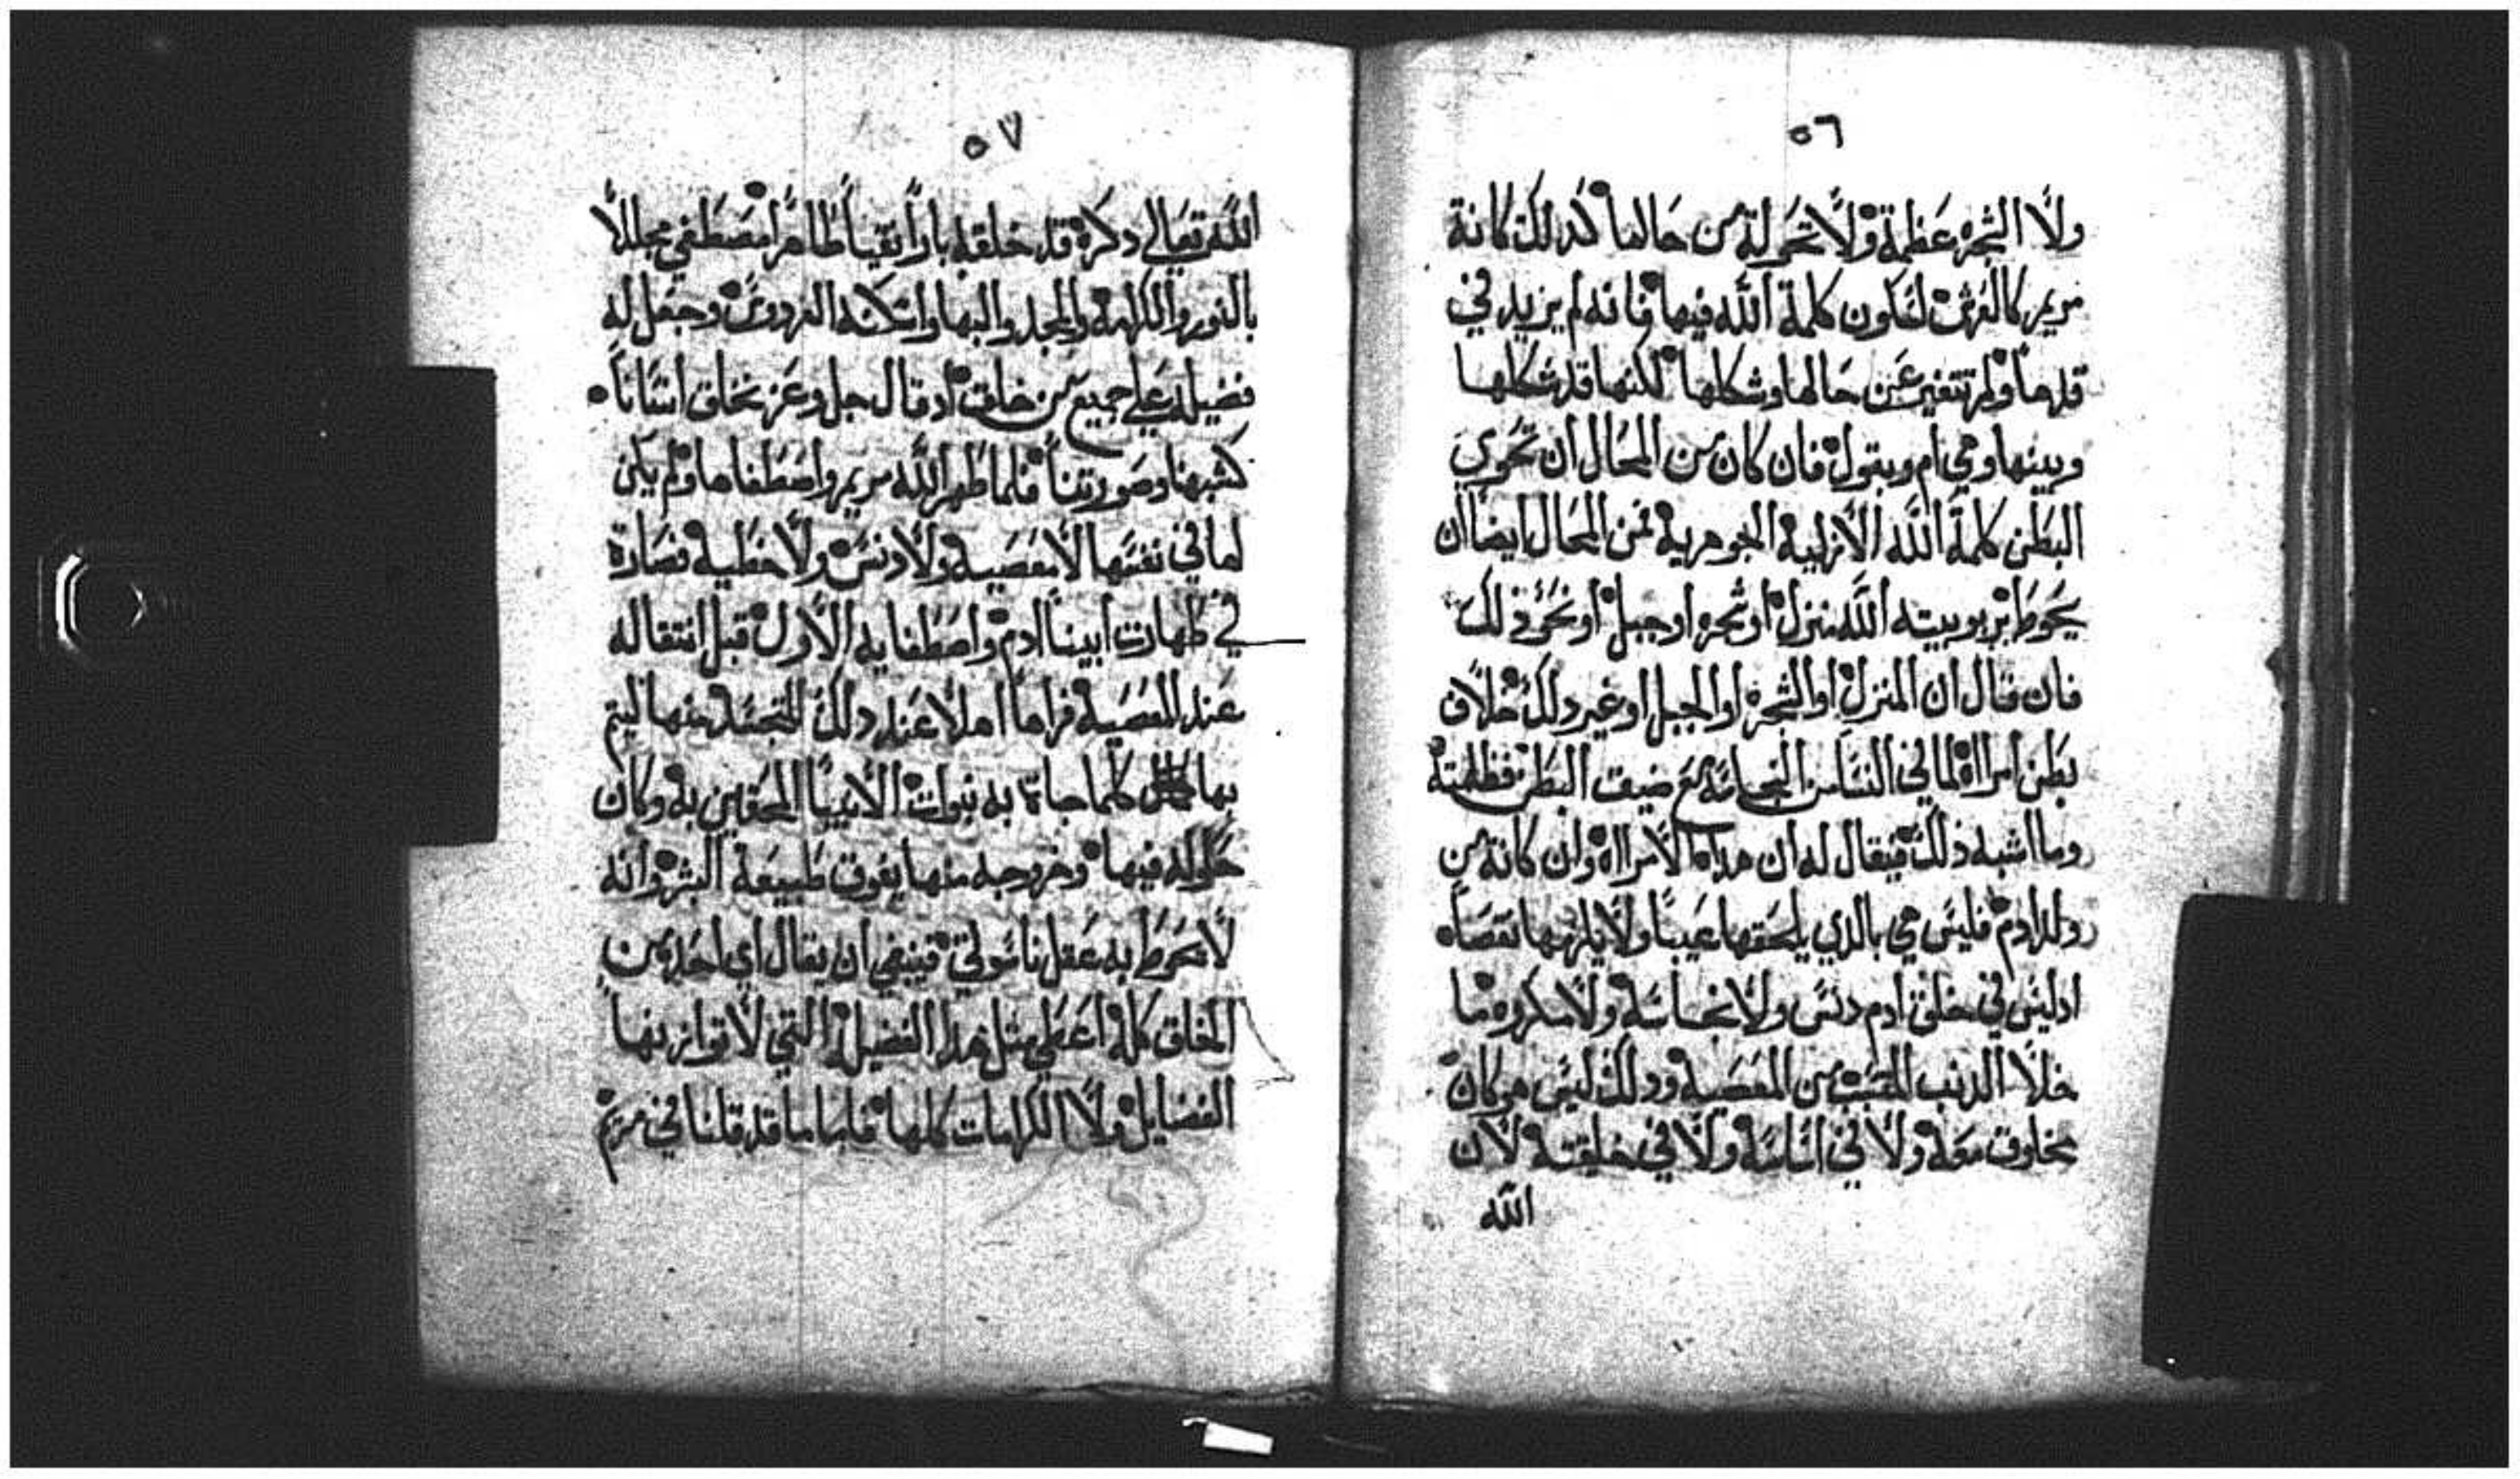 ٥٦
ولا الشجره عظمة ولا تحولة من حالها كدلك كانة
مريم كالعرش لتكون كلمة الله فيها فانه لم يزيد في
قدها ولم تتغير عن حالها وشكلها لكنها قد شكلها
وبينها وهي ام وبقول فان كان من المحال ان تحوي
البطن كلمة الله الازلية الجوهرية فمن المحال ايضا ان
يحوط بربوبيته الله منزل او شجره او جبل او نحو ذلك
فان قال ان المنزل او الشجره او الجبل او غير دلك خلاف
بطن امراة لما في النسا من النجاسة مع ضيق البطن وظلمته
وما اشبه ذلك فيقال له ان هداه الامراه وان كانة من
ولد ادم فليس هي بالدي يلحقها عيبا ولا يلزمها نقصاه
ادليس في خلق ادم دنس ولا نجاسة ولا مكروه ما
خلا الدنب من المعصية ودلك ليس هو كان
مخلوق معه ولا في اساسة ولا في خليقته لان
الله
٥٧
الله تعالي دكره قد خلقه بارا نقيا طاهرا مصطفي مجللا
بالنور والكرامة والمجد والبها واسكنه الفردوس وجعل له
فضيلة علي جميع من خلق اد قال جل وعز نخلق انسانا
كشبهنا وصورتنا فلما طهر الله مريم واصطفاها ولم يكن
لها في نفسها لا معصية ولا دنس ولا خطية فصارة
في طهارت ابينا ادم واصطفايه الاول قبل انتقاله
عند المعصية فراها اهلا عند دلك للتجسد منها ليتم
بها كلما جاة به نبوات الانبيا المحقين به وكان
حلوله فيها وخروجه منها يفوق طبيعة البشر وانه
لا يحوط به عقل ناسوتي فينبغي ان يقال اي احد من
الخلق كله اعطي مثل هدا الفضيلة التي لا توازيها
الفضايل ولا الكرامات كلها فلما ما قد قلنا في مريم